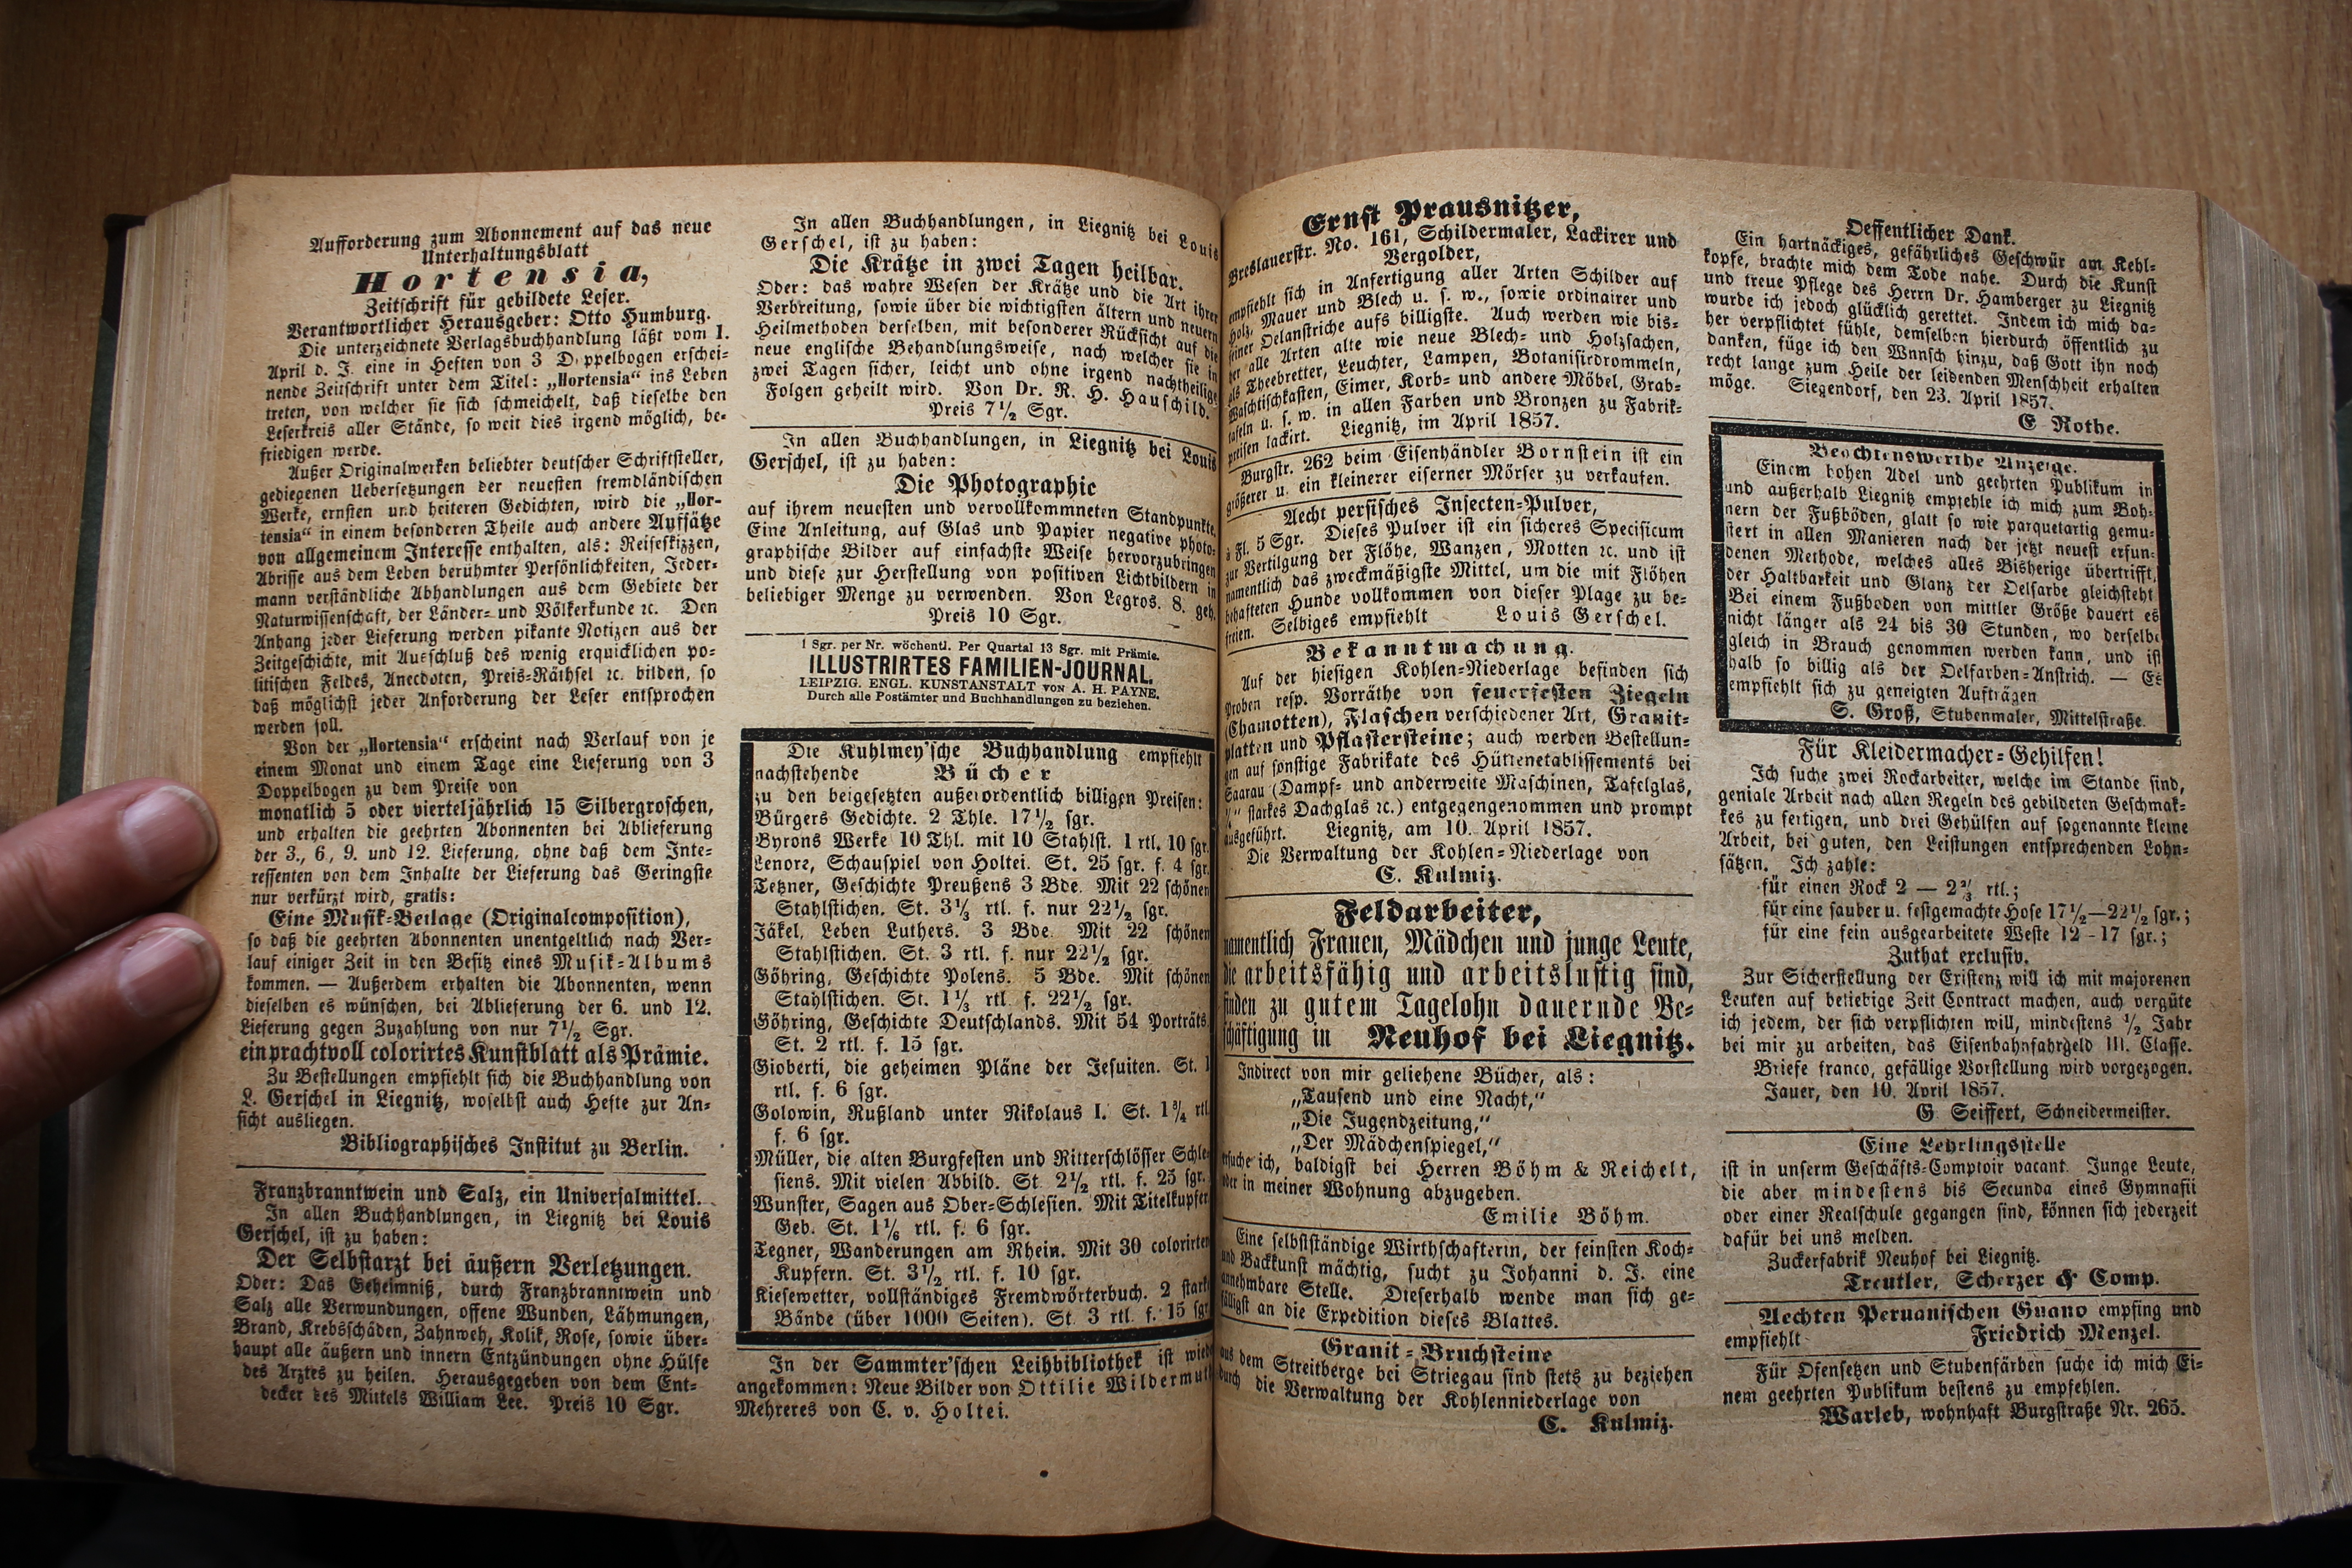 Aufforderung zum Abonnement auf das neue
Unterhaltungsblatt
Hortensia,
Zeitschrift für gebildete Leser.
Verantwortlicher Herausgeber: Otto Humburg.
Die unterzeichnete Verlagsbuchhandlung läßt vom 1.
April d. J. eine in Heften von 3 Doppelbogen erschei-
nende Zeitschrift unter dem Titel: „Hortensia“ ins Leben
treten, von welcher sie sich schmeichelt, daß dieselbe den
Leserkreis aller Stände, so weit dies irgend möglich, be-
friedigen werde.
Außer Originalwerken beliebter deutscher Schriftsteller,
gediegenen Uebersetzungen der neuesten fremdländischen
Werke, ernsten und heiteren Gedichten, wird die „Hor-
tensia“ in einem besonderen Theile auch andere Aufsätze
von allgemeinem Interesse enthalten, als: Reiseskizzen,
Abrisse aus dem Leben berühmter Persönlichkeiten, Jeder-
mann verständliche Abhandlungen aus dem Gebiete der
Naturwissenschaft, der Länder- und Völkerkunde ꝛc. Den
Anhang jeder Lieferung werden pikante Notizen aus der
Zeitgeschichte, mit Ausschluß des wenig erquicklichen po-
litischen Feldes, Anecdoten, Preis-Räthsel ꝛc. bilden, so
daß möglichst jeder Anforderung der Leser entsprochen
werden soll.
Von der „Hortensia“ erscheint nach Verlauf von je
einem Monat und einem Tage eine Lieferung von 3
Doppelbogen zu dem Preise von
monatlich 5 oder vierteljährlich 15 Silbergroschen,
und erhalten die geehrten Abonnenten bei Ablieferung
der 3., 6, 9. und 12. Lieferung, ohne daß dem Inte-
ressenten von dem Inhalte der Lieferung das Geringste
nur verkürzt wird, gratis:
Eine Musik-Beilage (Originalcomposition),
so daß die geehrten Abonnenten unentgeltlich nach Ver-
lauf einiger Zeit in den Besitz eines Musik-Albums
kommen. — Außerdem erhalten die Abonnenten, wenn
dieselben es wünschen, bei Ablieferung der 6. und 12.
Lieferung gegen Zuzahlung von nur 7½ Sgr.
ein prachtvoll colorirtes Kunstblatt als Prämie.
Zu Bestellungen empfiehlt sich die Buchhandlung von
L. Gerschel in Liegnitz, woselbst auch Hefte zur An-
sicht ausliegen.
Bibliographisches Institut zu Berlin.
Franzbranntwein und Salz, ein Universalmittel.
In allen Buchhandlungen, in Liegnitz bei Louis
Gerschel, ist zu haben:
Der Selbstarzt bei äußern Verletzungen.
Oder: Das Geheimniß, durch Franzbranntwein und
Salz alle Verwundungen, offene Wunden, Lähmungen,
Brand, Krebsschäden, Zahnweh, Kolik, Rose, sowie über-
haupt alle äußern und innern Entzündungen ohne Hülfe
des Arztes zu heilen. Herausgegeben von dem Ent-
decker des Mittels William Lee. Preis 10 Sgr.
In allen Buchhandlungen, in Liegnitz bei Louis
Gerschel, ist zu haben:
Die Krätze in zwei Tagen heilbar.
Oder: das wahre Wesen der Krätze und die Art ihrer
Verbreitung, sowie über die wichtigsten ältern und neuern
Heilmethoden derselben, mit besonderer Rücksicht auf die
neue englische Behandlungsweise, nach welcher sie in
zwei Tagen sicher, leicht und ohne irgend nachtheilige
Folgen geheilt wird. Von Dr. R. H. Hauschild.
Preis 7½ Sgr.
In allen Buchhandlungen, in Liegnitz bei Louis
Gerschel, ist zu haben:
Die Photographie
auf ihrem neuesten und vervollkommneten Standpunkte.
Eine Anleitung, auf Glas und Papier negative photo-
graphische Bilder auf einfachste Weise hervorzubringen
und diese zur Herstellung von positiven Lichtbildern in
beliebiger Menge zu verwenden. Von Legros. 8. geh.
Preis 10 Sgr.
1 Sgr. per Nr. wöchentl. Per Quartal 13 Sgr. mit Prämie.
ILLUSTRIRTES FAMILIEN-JOURNAL.
LEIPZIG. ENGL. KUNSTANSTALT von A. H. PAYNE.
Durch alle Postämter und Buchhandlungen zu beziehen.
Die Kuhlmey'sche Buchhandlung empfiehlt
nachstehende Bücher
zu den beigesetzten außerordentlich billigen Preisen:
Bürgers Gedichte. 2 Thle. 17½ sgr.
Byrons Werke 10 Thl. mit 10 Stahlst. 1 rtl. 10 sgr.
Lenore, Schauspiel von Holtei. St. 25 sgr. f. 4 sgr.
Tetzner, Geschichte Preußens 3 Bde. Mit 22 schönen
Stahlstichen. St. 3⅓ rtl. f. nur 22½ sgr.
Jäkel, Leben Luthers. 3 Bde. Mit 22 schönen
Stahlstichen. St. 3 rtl. f. nur 22½ sgr.
Göhring, Geschichte Polens. 5 Bde. Mit schönen
Stahlstichen. St. 1⅓ rtl. f. 22½ sgr.
Göhring, Geschichte Deutschlands. Mit 54 Porträts.
St. 2 rtl. f. 15 sgr.
Gioberti, die geheimen Pläne der Jesuiten. St. 1
rtl. f. 6 sgr.
Golowin, Rußland unter Nikolaus I. St. 1¾ rtl.
f. 6 sgr.
Müller, die alten Burgfesten und Ritterschlösser Schle-
siens. Mit vielen Abbild. St. 2½ rtl. f. 25 sgr.
Wunster, Sagen aus Ober-Schlesien. Mit Titelkupfer.
Geb. St. 1⅙ rtl. f. 6 sgr.
Tegner, Wanderungen am Rhein. Mit 30 colorirten
Kupfern. St. 3½ rtl. f. 10 sgr.
Kiesewetter, vollständiges Fremdwörterbuch. 2 starke
Bände (über 1000 Seiten). St. 3 rtl. f. 15 sgr.
In der Sammter'schen Leihbibliothek ist wieder
angekommen: Neue Bilder von Ottilie Wildermuth
Mehreres von C. v. Holtei.
Ernst Prausnitzer,
Breslauerstr. No. 161, Schildermaler, Lackirer und
Vergolder,
empfiehlt sich in Anfertigung aller Arten Schilder auf
Holz, Mauer und Blech u. s. w., sowie ordinairer und
feiner Oelanstriche aufs billigste. Auch werden wie bis-
her alle Arten alte wie neue Blech- und Holzsachen,
als Theebretter, Leuchter, Lampen, Botanisirdrommeln,
Waschtischkasten, Eimer, Korb- und andere Möbel, Grab-
tafeln u. s. w. in allen Farben und Bronzen zu Fabrik-
preisen lackirt. Liegnitz, im April 1857.
Burgstr. 262 beim Eisenhändler Bornstein ist ein
größerer u. ein kleinerer eiserner Mörser zu verkaufen.
Aecht persisches Insecten-Pulver,
à Fl. 5 Sgr. Dieses Pulver ist ein sicheres Specificum
zur Vertilgung der Flöhe, Wanzen, Motten ꝛc. und ist
namentlich das zweckmäßigste Mittel, um die mit Flöhen
behafteten Hunde vollkommen von dieser Plage zu be-
freien. Selbiges empfiehlt Louis Gerschel.
Bekanntmachung.
Auf der hiesigen Kohlen-Niederlage befinden sich
Proben resp. Vorräthe von feuerfesten Ziegeln
(Chamotten), Flaschen verschiedener Art, Granit-
platten und Pflastersteine; auch werden Bestellun-
gen auf sonstige Fabrikate des Hüttenetablissements bei
Saarau (Dampf- und anderweite Maschinen, Tafelglas,
starkes Dachglas ꝛc.) entgegengenommen und prompt
ausgeführt. Liegnitz, am 10. April 1857.
Die Verwaltung der Kohlen-Niederlage von
C. Kulmiz.
Feldarbeiter,
namentlich Frauen, Mädchen und junge Leute,
die arbeitsfähig und arbeitslustig sind,
finden zu gutem Tagelohn dauernde Be-
schäftigung in Neuhof bei Liegnitz.
Indirect von mir geliehene Bücher, als:
„Tausend und eine Nacht,“
„Die Jugendzeitung,“
„Der Mädchenspiegel,“
ersuche ich, baldigst bei Herren Böhm & Reichelt,
oder in meiner Wohnung abzugeben.
Emilie Böhm.
Eine selbstständige Wirthschafterin, der feinsten Koch-
und Backkunst mächtig, sucht zu Johanni d. J. eine
annehmbare Stelle. Dieserhalb wende man sich ge-
fälligst an die Expedition dieses Blattes.
Granit-Bruchsteine
aus dem Streitberge bei Striegau sind stets zu beziehen
durch die Verwaltung der Kohlenniederlage von
C. Kulmiz.
Oeffentlicher Dank.
Ein hartnäckiges, gefährliches Geschwür am Kehl-
kopfe, brachte mich dem Tode nahe. Durch die Kunst
und treue Pflege des Herrn Dr. Hamberger zu Liegnitz
wurde ich jedoch glücklich gerettet. Indem ich mich da-
her verpflichtet fühle, demselben hierdurch öffentlich zu
danken, füge ich den Wnnsch hinzu, daß Gott ihn noch
recht lange zum Heile der leidenden Menschheit erhalten
möge. Siegendorf, den 23. April 1857.
E. Rothe.
Beachtenswerthe Anzeige.
Einem hohen Adel und geehrten Publikum in
und außerhalb Liegnitz empfehle ich mich zum Boh-
nern der Fußböden, glatt so wie parquetartig gemu-
stert in allen Manieren nach der jetzt neuest erfun-
denen Methode, welches alles Bisherige übertrifft,
der Haltbarkeit und Glanz der Oelfarbe gleichsteht.
Bei einem Fußboden von mittler Größe dauert es
nicht länger als 24 bis 30 Stunden, wo derselbe
gleich in Brauch genommen werden kann, und ist
halb so billig als der Oelfarben-Anstrich. — Es
empfiehlt sich zu geneigten Aufträgen
S. Groß, Stubenmaler, Mittelstraße.
Für Kleidermacher-Gehilfen!
Ich suche zwei Rockarbeiter, welche im Stande sind,
geniale Arbeit nach allen Regeln des gebildeten Geschmak-
kes zu fertigen, und drei Gehülfen auf sogenannte kleine
Arbeit, bei guten, den Leistungen entsprechenden Lohn-
sätzen. Ich zahle:
für einen Rock 2 — 2⅔ rtl.;
für eine sauber u. festgemachte Hose 17½—22½ sgr.;
für eine fein ausgearbeitete Weste 12-17 sgr.;
Zuthat exclusiv.
Zur Sicherstellung der Existenz will ich mit majorenen
Leuten auf beliebige Zeit Contract machen, auch vergüte
ich jedem, der sich verpflichten will, mindestens ½ Jahr
bei mir zu arbeiten, das Eisenbahnfahrgeld III. Classe.
Briefe franco, gefällige Vorstellung wird vorgezogen.
Jauer, den 10. April 1857.
G. Seiffert, Schneidermeister.
Eine Lehrlingsstelle
ist in unserm Geschäfts-Comptoir vacant. Junge Leute,
die aber mindestens bis Secunda eines Gymnasii
oder einer Realschule gegangen sind, können sich jederzeit
dafür bei uns melden.
Zuckerfabrik Neuhof bei Liegnitz.
Treutler, Scherzer & Comp.
Aechten Peruanischen Guano empfing und
empfiehlt Friedrich Menzel.
Für Ofensetzen und Stubenfärben suche ich mich Ei-
nem geehrten Publikum bestens zu empfehlen.
Warleb, wohnhaft Burgstraße Nr. 265.